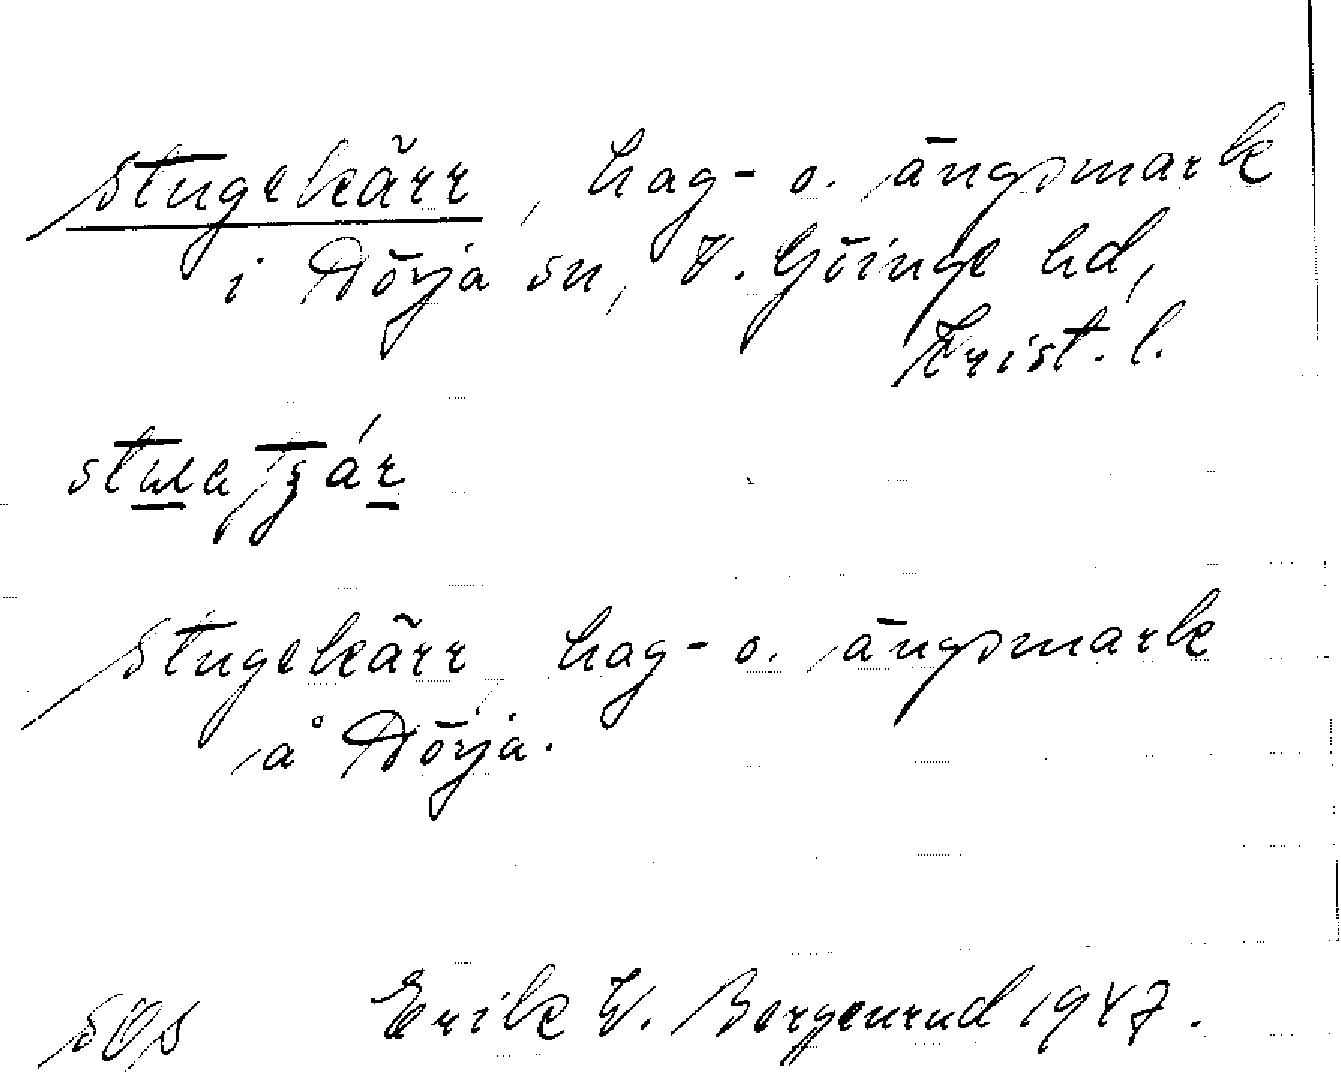 Stugekärr, hag- o. ängsmark
i Dörja sn, V. Göinge hd,
Krist. l.
Stugekärr, hag- o. ängsmark
å Dörja.
SOS Erik W. Bergenrud 1947.